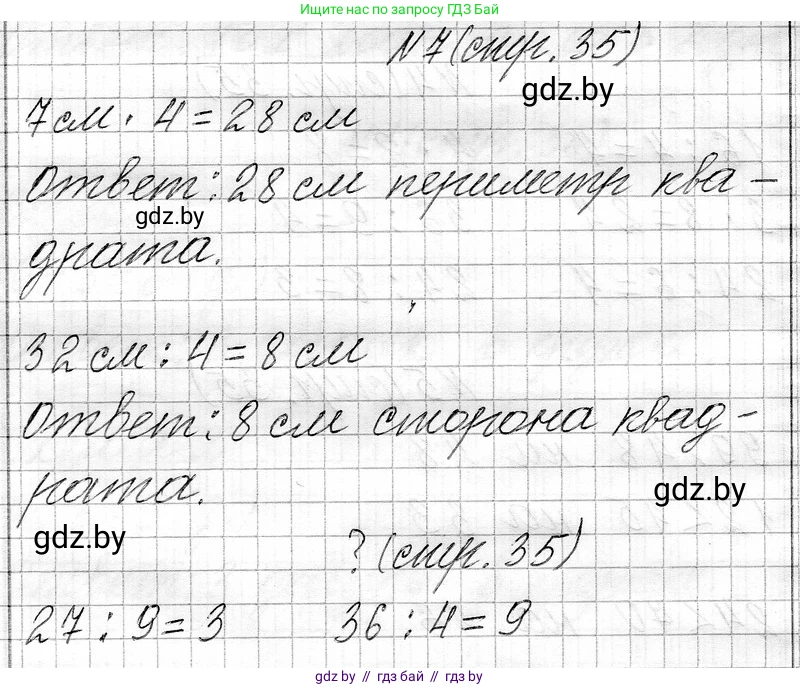 Ищите нас по запросу ГДЗ Бай
N7 (стр. 35)
gdz.by
7 см · 4 = 28 см
Ответ: 28 см периметр ква-
gdz.by
драта.
32 см : 4 = 8 см
Ответ: 8 см сторона квад-
рата.
gdz.by
gdz.by
? (стр. 35)
27 : 9 = 3 36 : 4 = 9
gdz.by // гдз бай // gdz.by